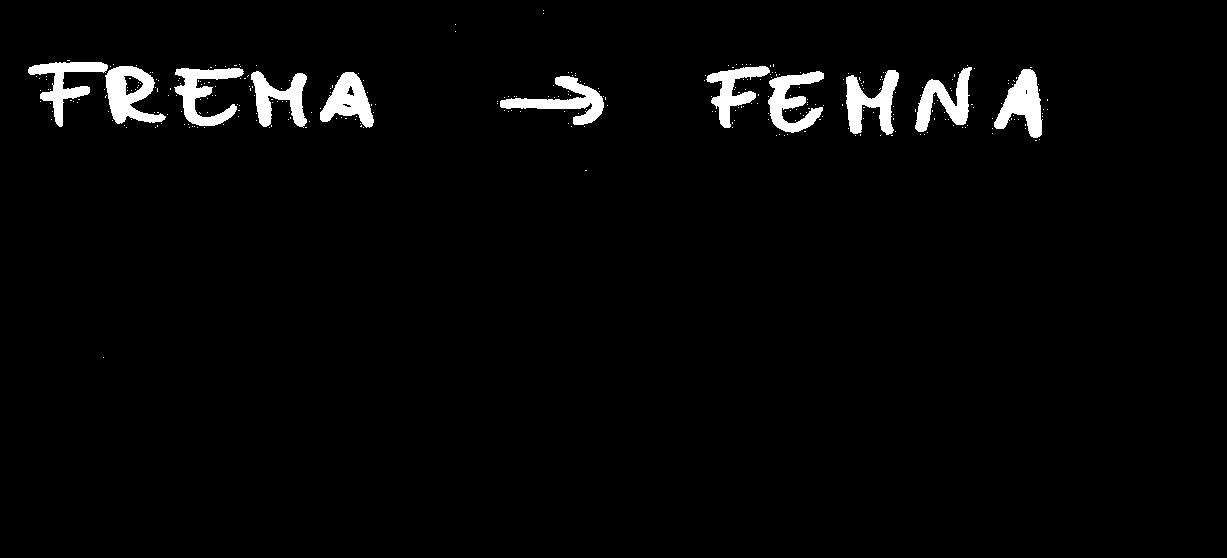 FREMA → FEMNA